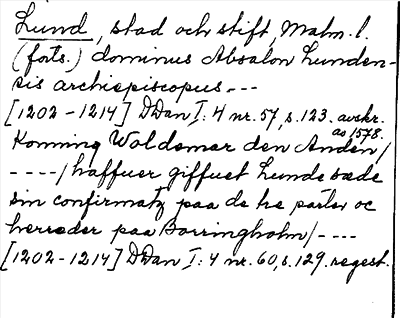 Lund, stad och stift, Malm. l.
(forts.) dominus Absalon Lunden-
sis archiepiscopus ---
[1202-1214] DDan I: 4 nr. 57, s. 123. avskr.
av 1578.
Konning Woldemar den Anden/
----/haffuer giffuet Lunde sæde
sin confirmatz paa de tre parter oc
herreder paa Borringholm/----
[1202-1214] DDan I: 4 nr. 60, s. 129. regest.